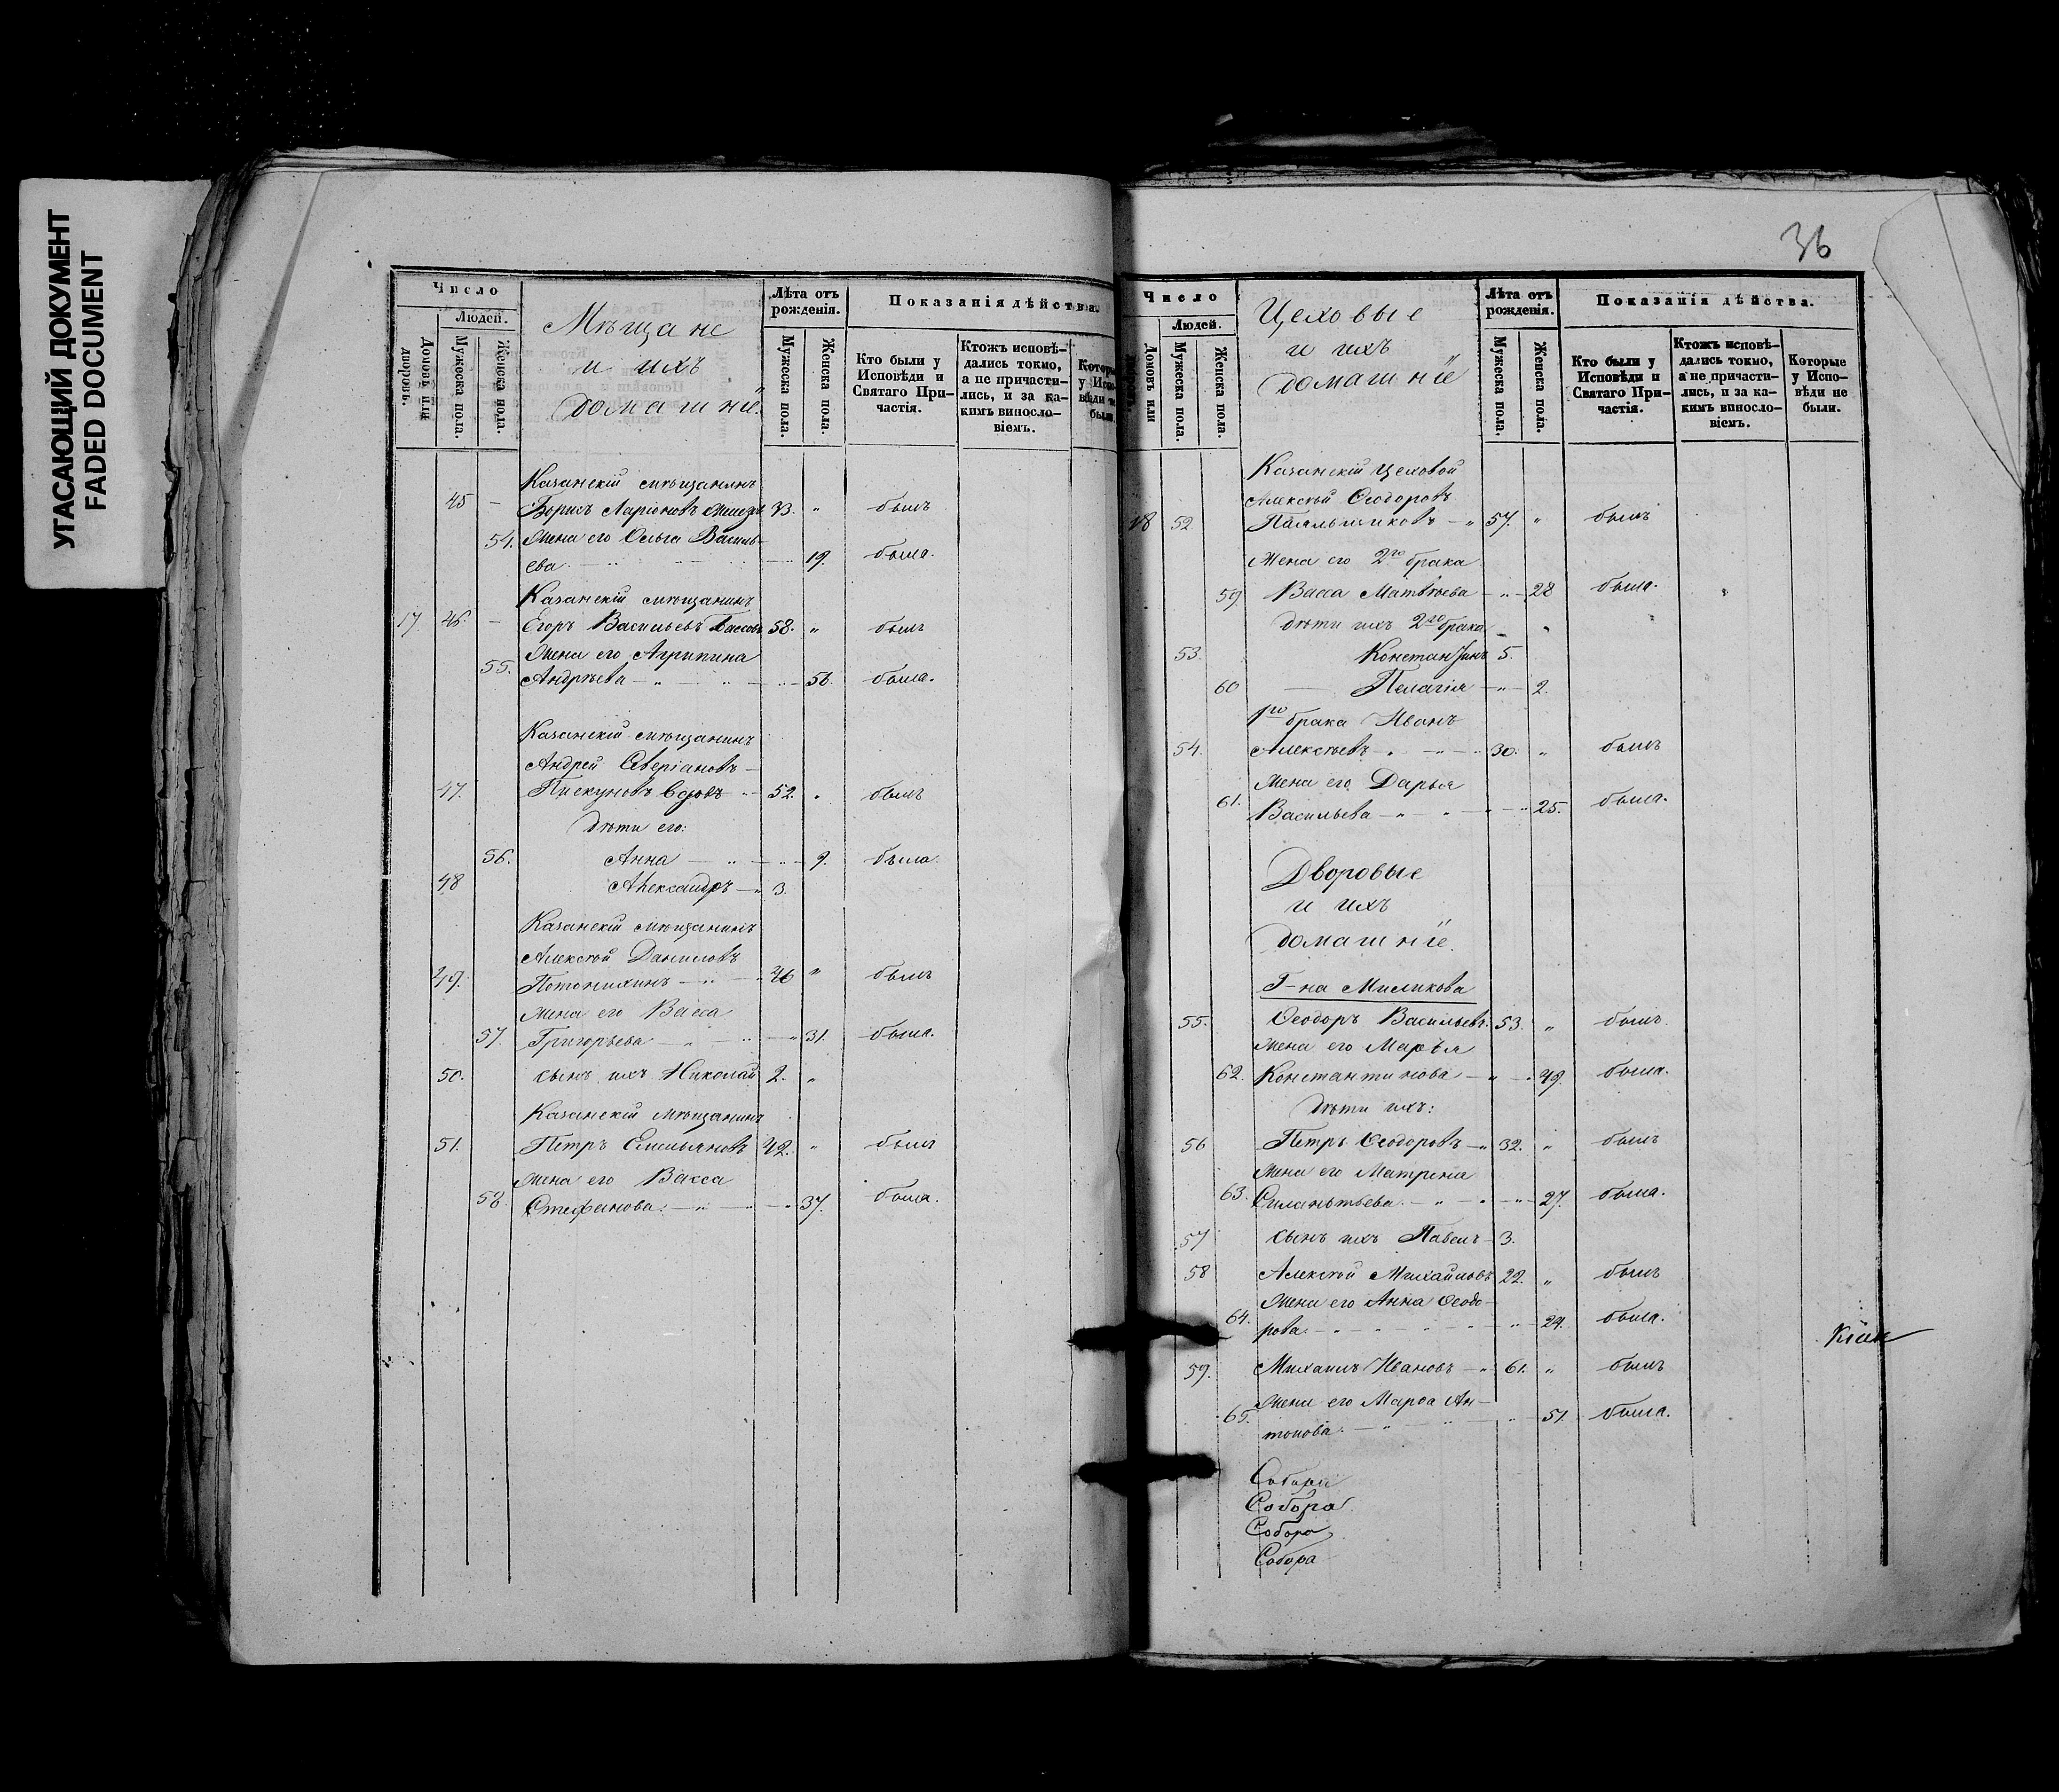 УГАСАЮЩИЙ ДОКУМЕНТ
FADED DOCUMENT
Число
Людей.
Домовъ или дворовъ.
Мужеска пола.
Женска пола.
Мѣщане
и ихъ
домашніе.
Лѣта отъ рожденія.
Мужеска пола.
Женска пола.
Показанія дѣйства.
Кто были у Исповѣди и Святаго Причастія.
Ктожъ исповѣдались токмо, а не причастились, и за какимъ винословіемъ.
Казанскій мѣщанинъ
45 — Борисъ Ларіоновъ 23. " былъ
54. Жена его Ольга Василь-
ева 19. была.
Казанскій мѣщанинъ
17 46. — Егоръ Васильевъ 58. " былъ
55. Жена его Агрипина
Андрѣева — " — 56. была.
Казанскій мѣщанинъ
Андрей Северіановъ —
47. Пискуновъ вдовъ 52. " былъ
дѣти его:
56. Анна — 9. была.
48 Александръ — 3.
Казанскій мѣщанинъ
Алексѣй Даниловъ
49. 46 " былъ
Жена его Васса
57. Григорьева — " — 31. была.
50. сынъ ихъ Николай 2. "
Казанскій мѣщанинъ
51. Петръ Емельяновъ 42. " былъ
Жена его Васса
58. Стефанова — " — 37. была.
36
Число
Людей.
Домовъ или
Мужеска пола.
Женска пола.
Цеховые
и ихъ
домашніе
Лѣта отъ рожденія.
Мужеска пола.
Женска пола.
Показанія дѣйства.
Кто были у Исповѣди и Святаго Причастія.
Ктожъ исповѣдались токмо, а не причастились, и за какимъ винословіемъ.
Которые у Исповѣди не были.
Казанскій цеховой
Алексѣй Ѳеодоровъ
18 52. Паяльщиковъ — " 57. " былъ
Жена его 2го брака
59. Васса Матвѣева — " — 28 была.
дѣти ихъ 2го брака
53. Константинъ 5.
60 — Пелагія — " — 2.
1го брака Иванъ
54. Алексѣевъ — 30. " былъ
Жена его Дарья
61. Васильева — " — 25. была.
Дворовые
и ихъ
домашніе.
Г-на Миликова
55. Ѳеодоръ Васильевъ. 53. " былъ.
Жена его Марья
62. Константинова — " — 49. была.
дѣти ихъ:
56 Петръ Ѳеодоровъ — " 32. " былъ
Жена его Матрена
63. Силантьева. — " — 27. была.
57 сынъ ихъ Павелъ — 3.
58 Алексѣй Михайловъ 22. " былъ
Жена его Анна Ѳеодо-
64. рова. — 24. была.
59. Михаилъ Ивановъ — " 61. " былъ
Жена его Марѳа Ан-
65. тонова. — " 51. была.
Собора
Собора
Собора
Собора